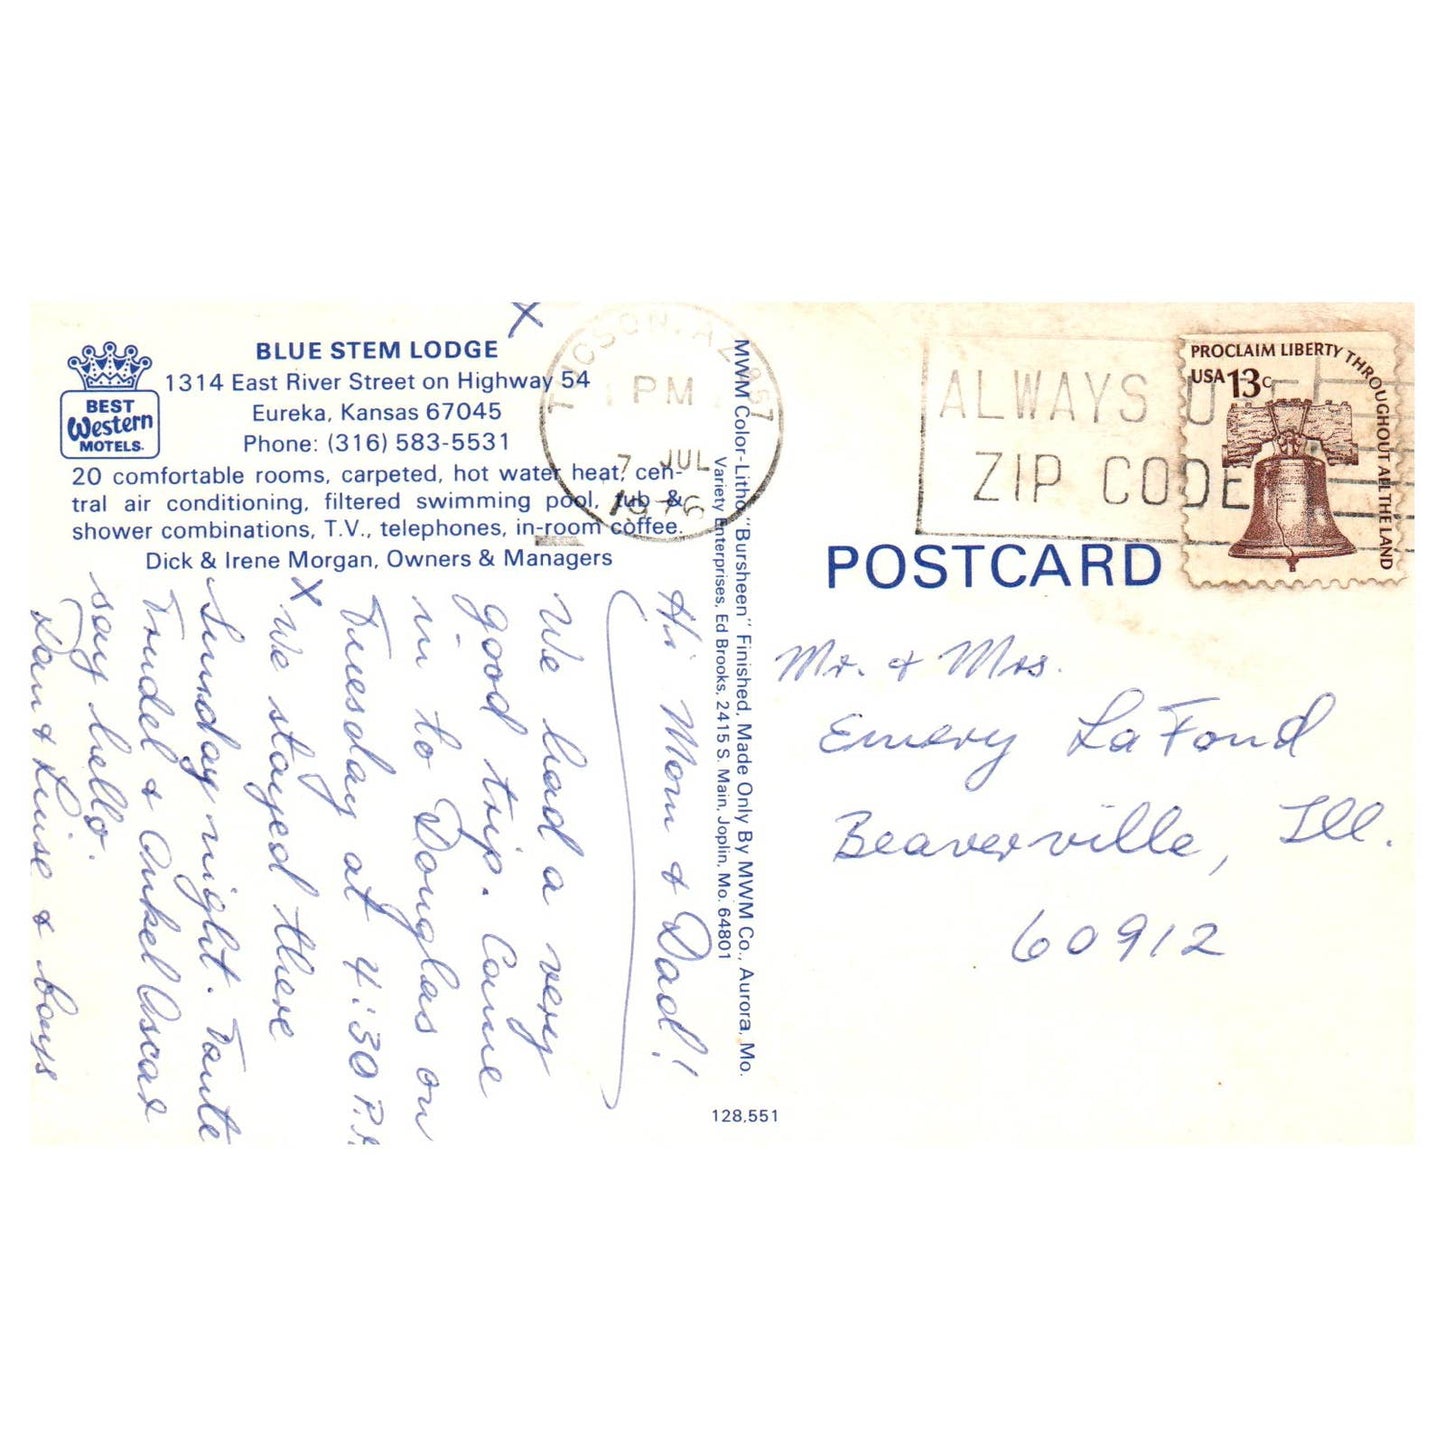 BLUE STEM LODGE
1314 East River Street on Highway 54
Eureka, Kansas 67045
Phone: (316) 583-5531
BEST
Western
MOTELS.
20 comfortable rooms, carpeted, hot water heat, cen-
tral air conditioning, filtered swimming pool, tub &
shower combinations, T.V., telephones, in-room coffee.
Dick & Irene Morgan, Owners & Managers
X
Hi Mom & Dad!
We had a very
good trip. Came
in to Douglas on
Tuesday at 4:30 P.
X We stayed there
Sunday night. Tante
Trudel & Onkel Oscar
say hello.
& Luise & boys
MWM Color-Litho "Bursheen" Finished, Made Only By MWM Co., Aurora, Mo.
Variety Enterprises, Ed Brooks, 2415 S. Main, Joplin, Mo. 64801
128,551
TUCSON, AZ 857
PM
7 JUL
1976
ALWAYS U
ZIP CODE
PROCLAIM LIBERTY THROUGHOUT ALL THE LAND
USA 13c
POSTCARD
Mr. & Mrs.
Emery LaFond
Beaverville, Ill.
60912